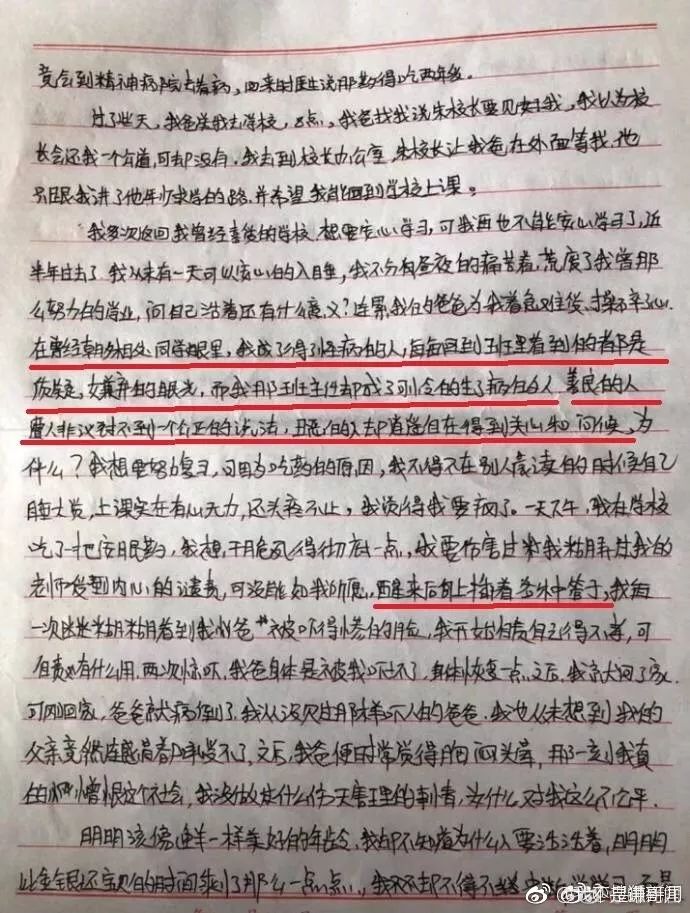 竟会到精神病院去看病，回来时医生说那药得吃两年级。
过了些天，我爸送我去学校，8点，我爸找我说朱校长要见女子我，我以为校
长会还我一个公道，可却没有，我去到校长办公室，朱校长让我爸在外面等我，他
只跟我讲了他年少求学的路，并希望我能回到学校上课。
我多次返回我曾经喜爱的学校，想要安心学习，可我再也不能安心学习了，近
半年过去了，我从未有一天可以安心的入睡，我不分白昼夜的痛苦着，荒废了我曾那
么努力的学业，问自己活着还有什么意义？连累我的爸爸为我着急
在曾经朝夕相处同学眼里，我成了得了怪病的人，每每回到班里看到的都是
质疑，嫌弃的眼光，而我那班主任却成了可怜的生了病的人，善良的人
遭人非议得不到一个公正的说法，丑陋的人却逍遥自在得到关心和问候，为
什么？我想要努力复习，可因为吃药的原因，我不得不在别人晨读的时候自己
睡大觉，上课实在有心无力，还头疼不止，我觉得我要疯了。一天下午，我在学校
吃了一把安眠药，我想，干脆死得彻底一点，我要伤害过我玷辱过我的
老师发型内心的谴责，可没能如我所愿，醒来后身上插着各种管子，我每
一次迷迷糊糊看到我爸爸被吓得惨白的脸，我开始自责自己得不孝，可
自责又有什么用，两次惊吓，我爸身体是被我吓坏了，身体恢复一点之后，我就大回了家
可刚回家，爸爸就大病倒了，我从没见过那样吓人的爸爸，我也从未想到我的
父亲竟然连感冒着
的好憎恨这个社会，我没做过什么伤天害理的事情，为什么对我这么不公平。
明明该像鲜花一样美好的年龄，我却不知道为什么人要活活着，明明
比金银还宝贵的时间剩了那么一点点，我